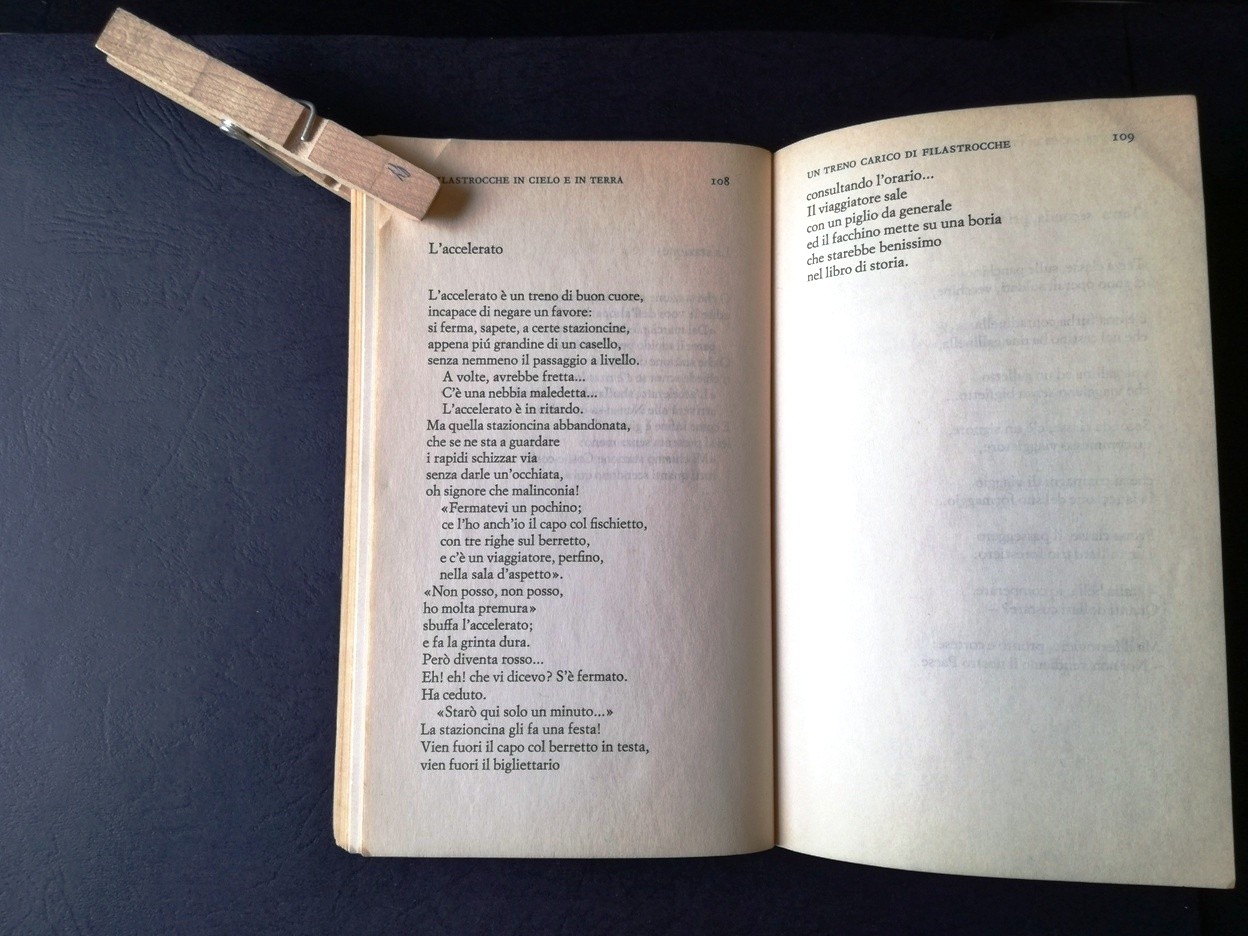 FILASTROCCHE IN CIELO E IN TERRA 108
L'accelerato
L'accelerato è un treno di buon cuore,
incapace di negare un favore:
si ferma, sapete, a certe stazioncine,
appena piú grandine di un casello,
senza nemmeno il passaggio a livello.
A volte, avrebbe fretta...
C'è una nebbia maledetta...
L'accelerato è in ritardo.
Ma quella stazioncina abbandonata,
che se ne sta a guardare
i rapidi schizzar via
senza darle un'occhiata,
oh signore che malinconia!
«Fermatevi un pochino;
ce l'ho anch'io il capo col fischietto,
con tre righe sul berretto,
e c'è un viaggiatore, perfino,
nella sala d'aspetto».
«Non posso, non posso,
ho molta premura»
sbuffa l'accelerato;
e fa la grinta dura.
Però diventa rosso...
Eh! eh! che vi dicevo? S'è fermato.
Ha ceduto.
«Starò qui solo un minuto...»
La stazioncina gli fa una festa!
Vien fuori il capo col berretto in testa,
vien fuori il bigliettario
UN TRENO CARICO DI FILASTROCCHE 109
consultando l'orario...
Il viaggiatore sale
con un piglio da generale
ed il facchino mette su una boria
che starebbe benissimo
nel libro di storia.